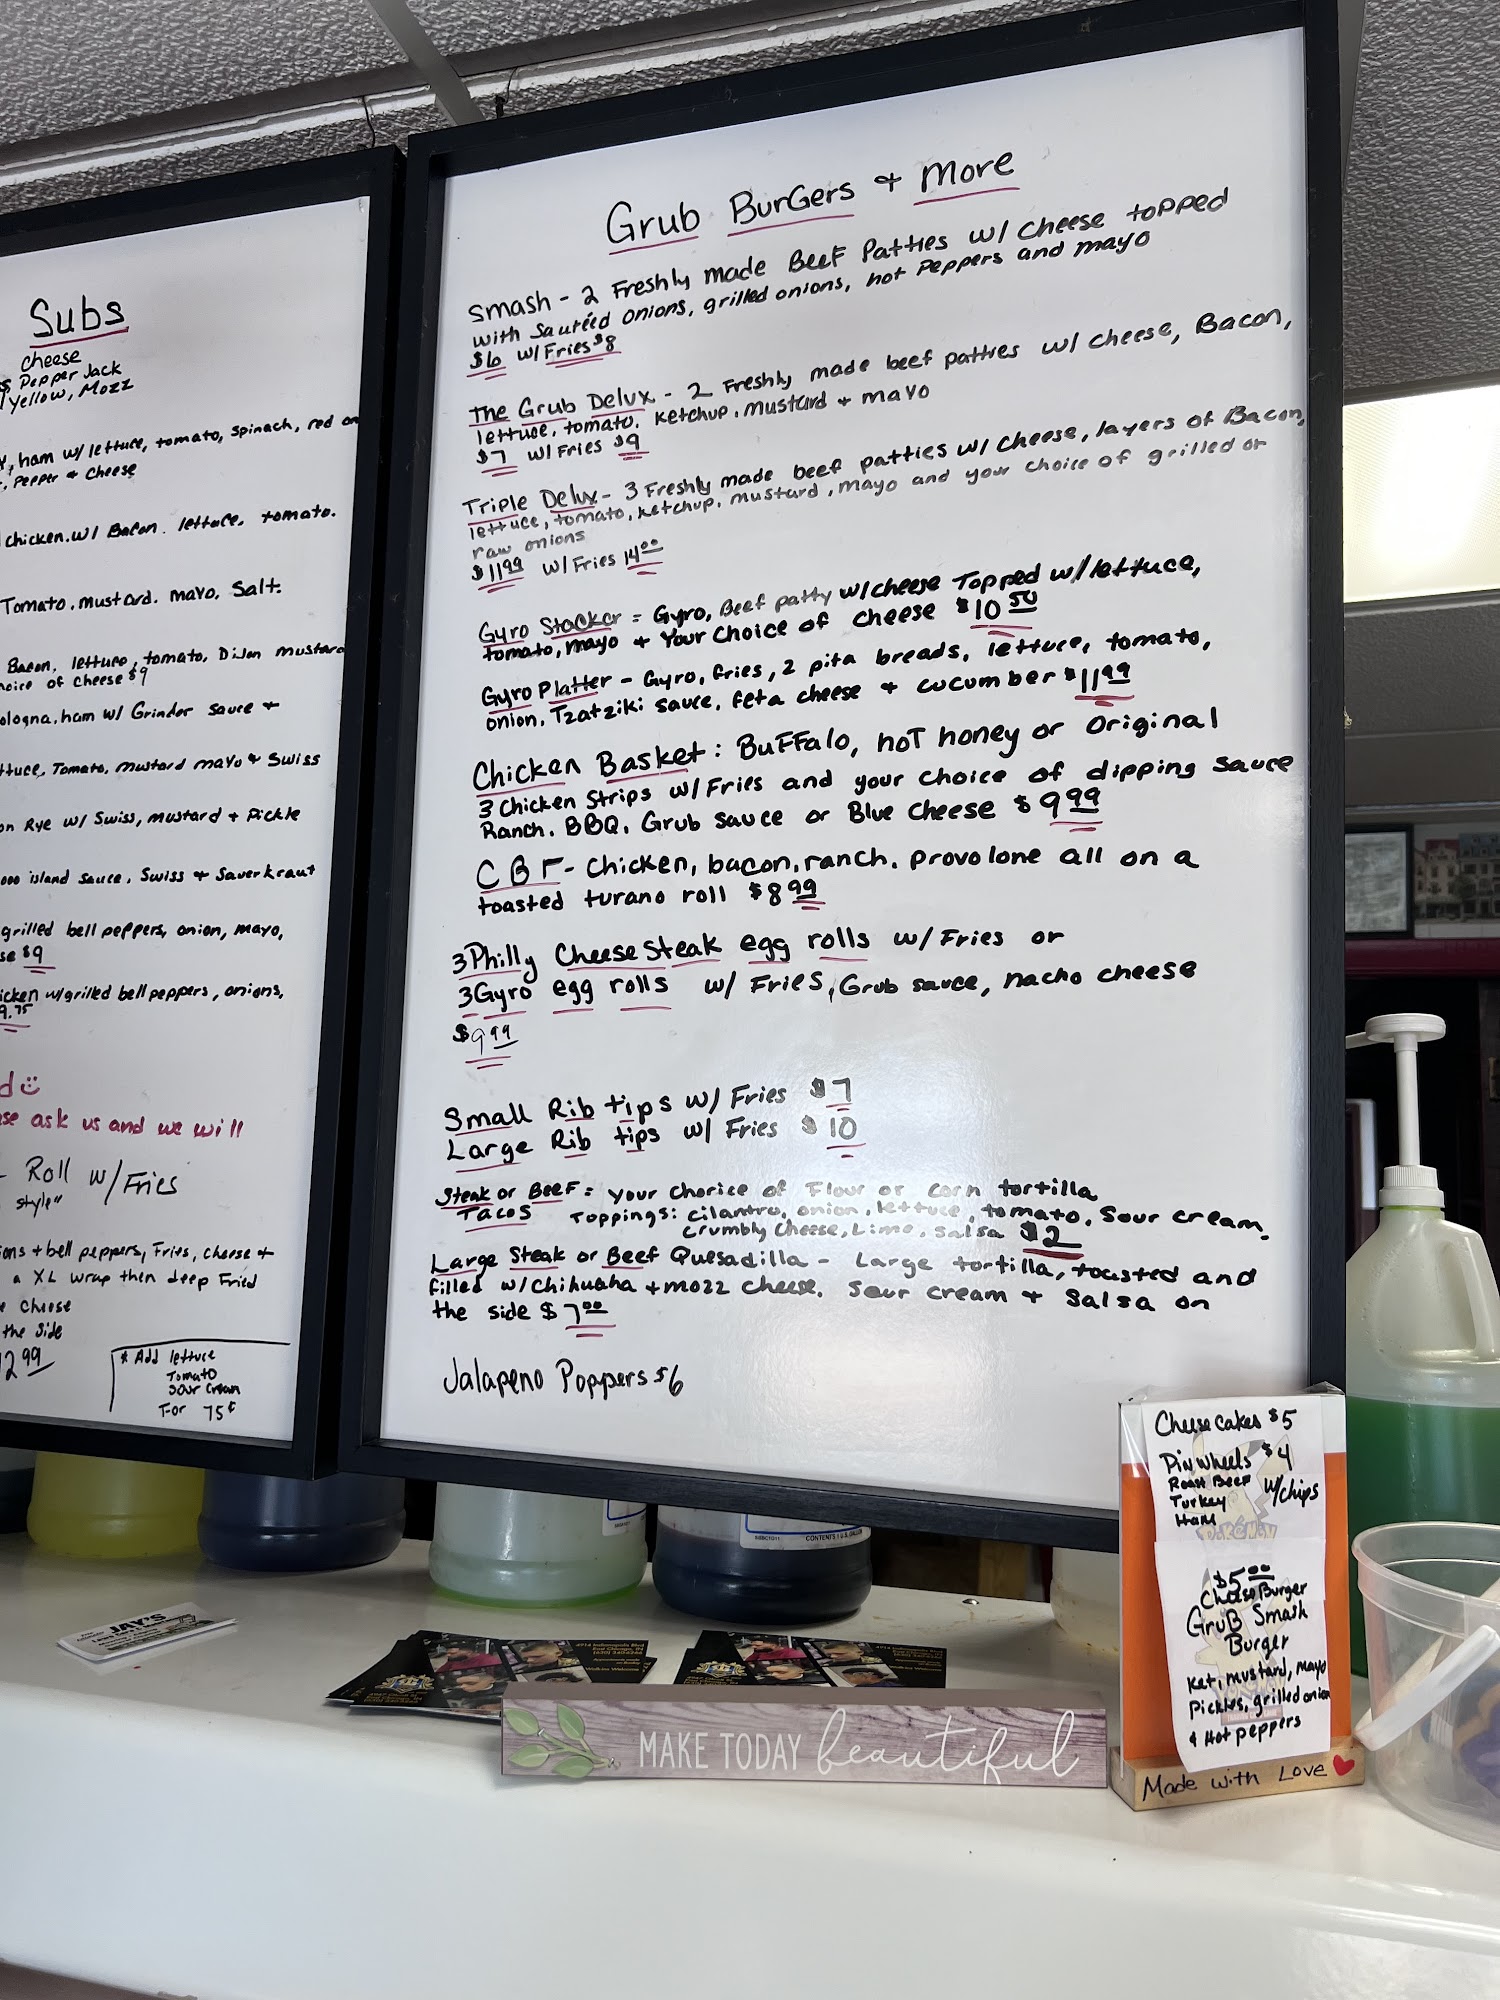 Subs
Cheese
Pepper Jack
Yellow, Mozz
ham w/ lettuce, tomato, spinach, red on
Pepper & Cheese
chicken. w/ Bacon. lettuce. tomato.
Tomato. mustard. mayo, Salt.
Bacon. lettuce, tomato, Dijon mustard
hoice of Cheese $9
ologna, ham w/ Grinder Sauce &
ttuce, Tomato, mustard mayo & Swiss
on Rye w/ Swiss, mustard + Pickle
000 island sauce, Swiss + Sauerkraut
grilled bell peppers, onion, mayo,
se $9
icken w/grilled bell peppers, onions,
9.75
d
se ask us and we will
Roll w/Fries
style"
ons + bell peppers, Fries, cheese +
a XL wrap then deep Fried
Cheese
the side
2 99
* Add lettuce
Tomato
Sour Cream
For 75¢
Grub BurGers & More
Smash - 2 Freshly made Beef Patties w/ Cheese topped
with Sautéed onions, grilled onions, hot Peppers and mayo
$6 w/ Fries $8
The Grub Delux - 2 Freshly made beef patties w/ cheese, Bacon,
lettuce, tomato, ketchup, mustard + mayo
$7 w/ Fries $9
Triple Delux - 3 Freshly made beef patties w/ cheese, layers of Bacon,
lettuce, tomato, ketchup, mustard, mayo and your choice of grilled or
raw onions
$11 99 w/ Fries 14 00
Gyro Stacker = Gyro, Beef patty w/cheese Topped w/lettuce,
tomato, mayo + Your Choice of cheese $10 50
Gyro Platter - Gyro, fries, 2 pita breads, lettuce, tomato,
onion, Tzatziki sauce, feta cheese + cucumber $11 99
Chicken Basket: Buffalo, hot honey or original
3 Chicken Strips w/ Fries and your choice of dipping sauce
Ranch, BBQ, Grub sauce or Blue Cheese $9 99
CBF - Chicken, bacon, ranch, provolone all on a
toasted turano roll $8 99
3 Philly CheeseSteak egg rolls w/ Fries or
3 Gyro egg rolls w/ Fries, Grub sauce, nacho cheese
$9 99
Small Rib tips w/ Fries $7
Large Rib tips w/ Fries $10
Steak or Beef = your choice of Flour or corn tortilla
Tacos Toppings: cilantro, onion, lettuce, tomato, Sour cream,
crumbly Cheese, Lime, salsa $2
Large Steak or Beef Quesadilla - Large tortilla, toasted and
filled w/Chihuaha + mozz cheese, Sour cream + Salsa on
the side $7 00
Jalapeno Poppers $6
Cheese cakes $5
Pinwheels $4
Roast Beef w/chips
Turkey
Ham
POKéMON
$5 00
CheeseBurger
GruB Smash
Burger
Ket, mustard, mayo
Pickles, grilled onion
& Hot peppers
Made with Love
MAKE TODAY beautiful
JAY'S
CONTENTS 1 U.S. GALLON
4914 Indianapolis Blvd
East Chicago, IN
4914 Indianapolis Blvd
East Chicago, IN